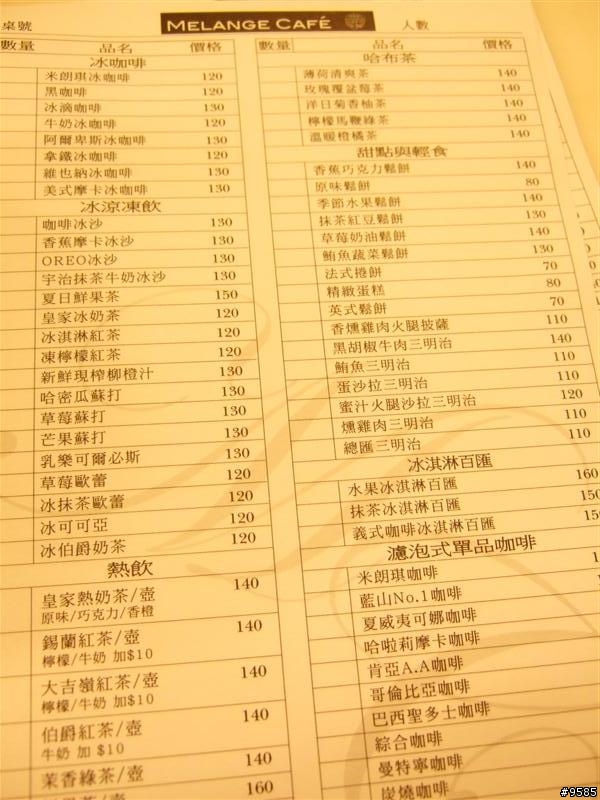 桌號
MELANGE CAFÉ
人數
數量 品名 價格
冰咖啡
米朗琪冰咖啡 120
黑咖啡 120
冰滴咖啡 130
牛奶冰咖啡 120
阿爾卑斯冰咖啡 130
拿鐵冰咖啡 120
維也納冰咖啡 130
美式摩卡冰咖啡 130
冰涼凍飲
咖啡冰沙 130
香蕉摩卡冰沙 130
OREO冰沙 130
宇治抹茶牛奶冰沙 130
夏日鮮果茶 150
皇家冰奶茶 120
冰淇淋紅茶 120
凍檸檬紅茶 120
新鮮現榨柳橙汁 130
哈密瓜蘇打 130
草莓蘇打 130
芒果蘇打 130
乳樂可爾必斯 130
草莓歐蕾 120
冰抹茶歐蕾 120
冰可可亞 120
冰伯爵奶茶 120
熱飲
皇家熱奶茶/壺 140
原味/巧克力/香橙
錫蘭紅茶/壺 140
檸檬/牛奶 加$10
大吉嶺紅茶/壺 140
檸檬/牛奶 加$10
伯爵紅茶/壺 140
牛奶 加 $10
茉香綠茶/壺 140
160
數量 品名 價格
哈布茶
薄荷清爽茶 140
玫瑰覆盆莓茶 140
洋日菊香柚茶 140
檸檬馬鞭綠茶 140
溫暖橙橘茶 140
甜點與輕食
香蕉巧克力鬆餅 140
原味鬆餅 80
季節水果鬆餅 140
抹茶紅豆鬆餅 130
草莓奶油鬆餅 140
鮪魚蔬菜鬆餅 130
法式捲餅 70
精緻蛋糕 80
英式鬆餅 70
香燻雞肉火腿披薩 110
黑胡椒牛肉三明治 140
鮪魚三明治 110
蛋沙拉三明治 110
蜜汁火腿沙拉三明治 120
燻雞肉三明治 110
總匯三明治 110
冰淇淋百匯
水果冰淇淋百匯 160
抹茶冰淇淋百匯 150
義式咖啡冰淇淋百匯
濾泡式單品咖啡
米朗琪咖啡
藍山No.1咖啡
夏威夷可娜咖啡
哈啦莉摩卡咖啡
肯亞A.A咖啡
哥倫比亞咖啡
巴西聖多士咖啡
綜合咖啡
曼特寧咖啡
炭燒咖啡
#9585